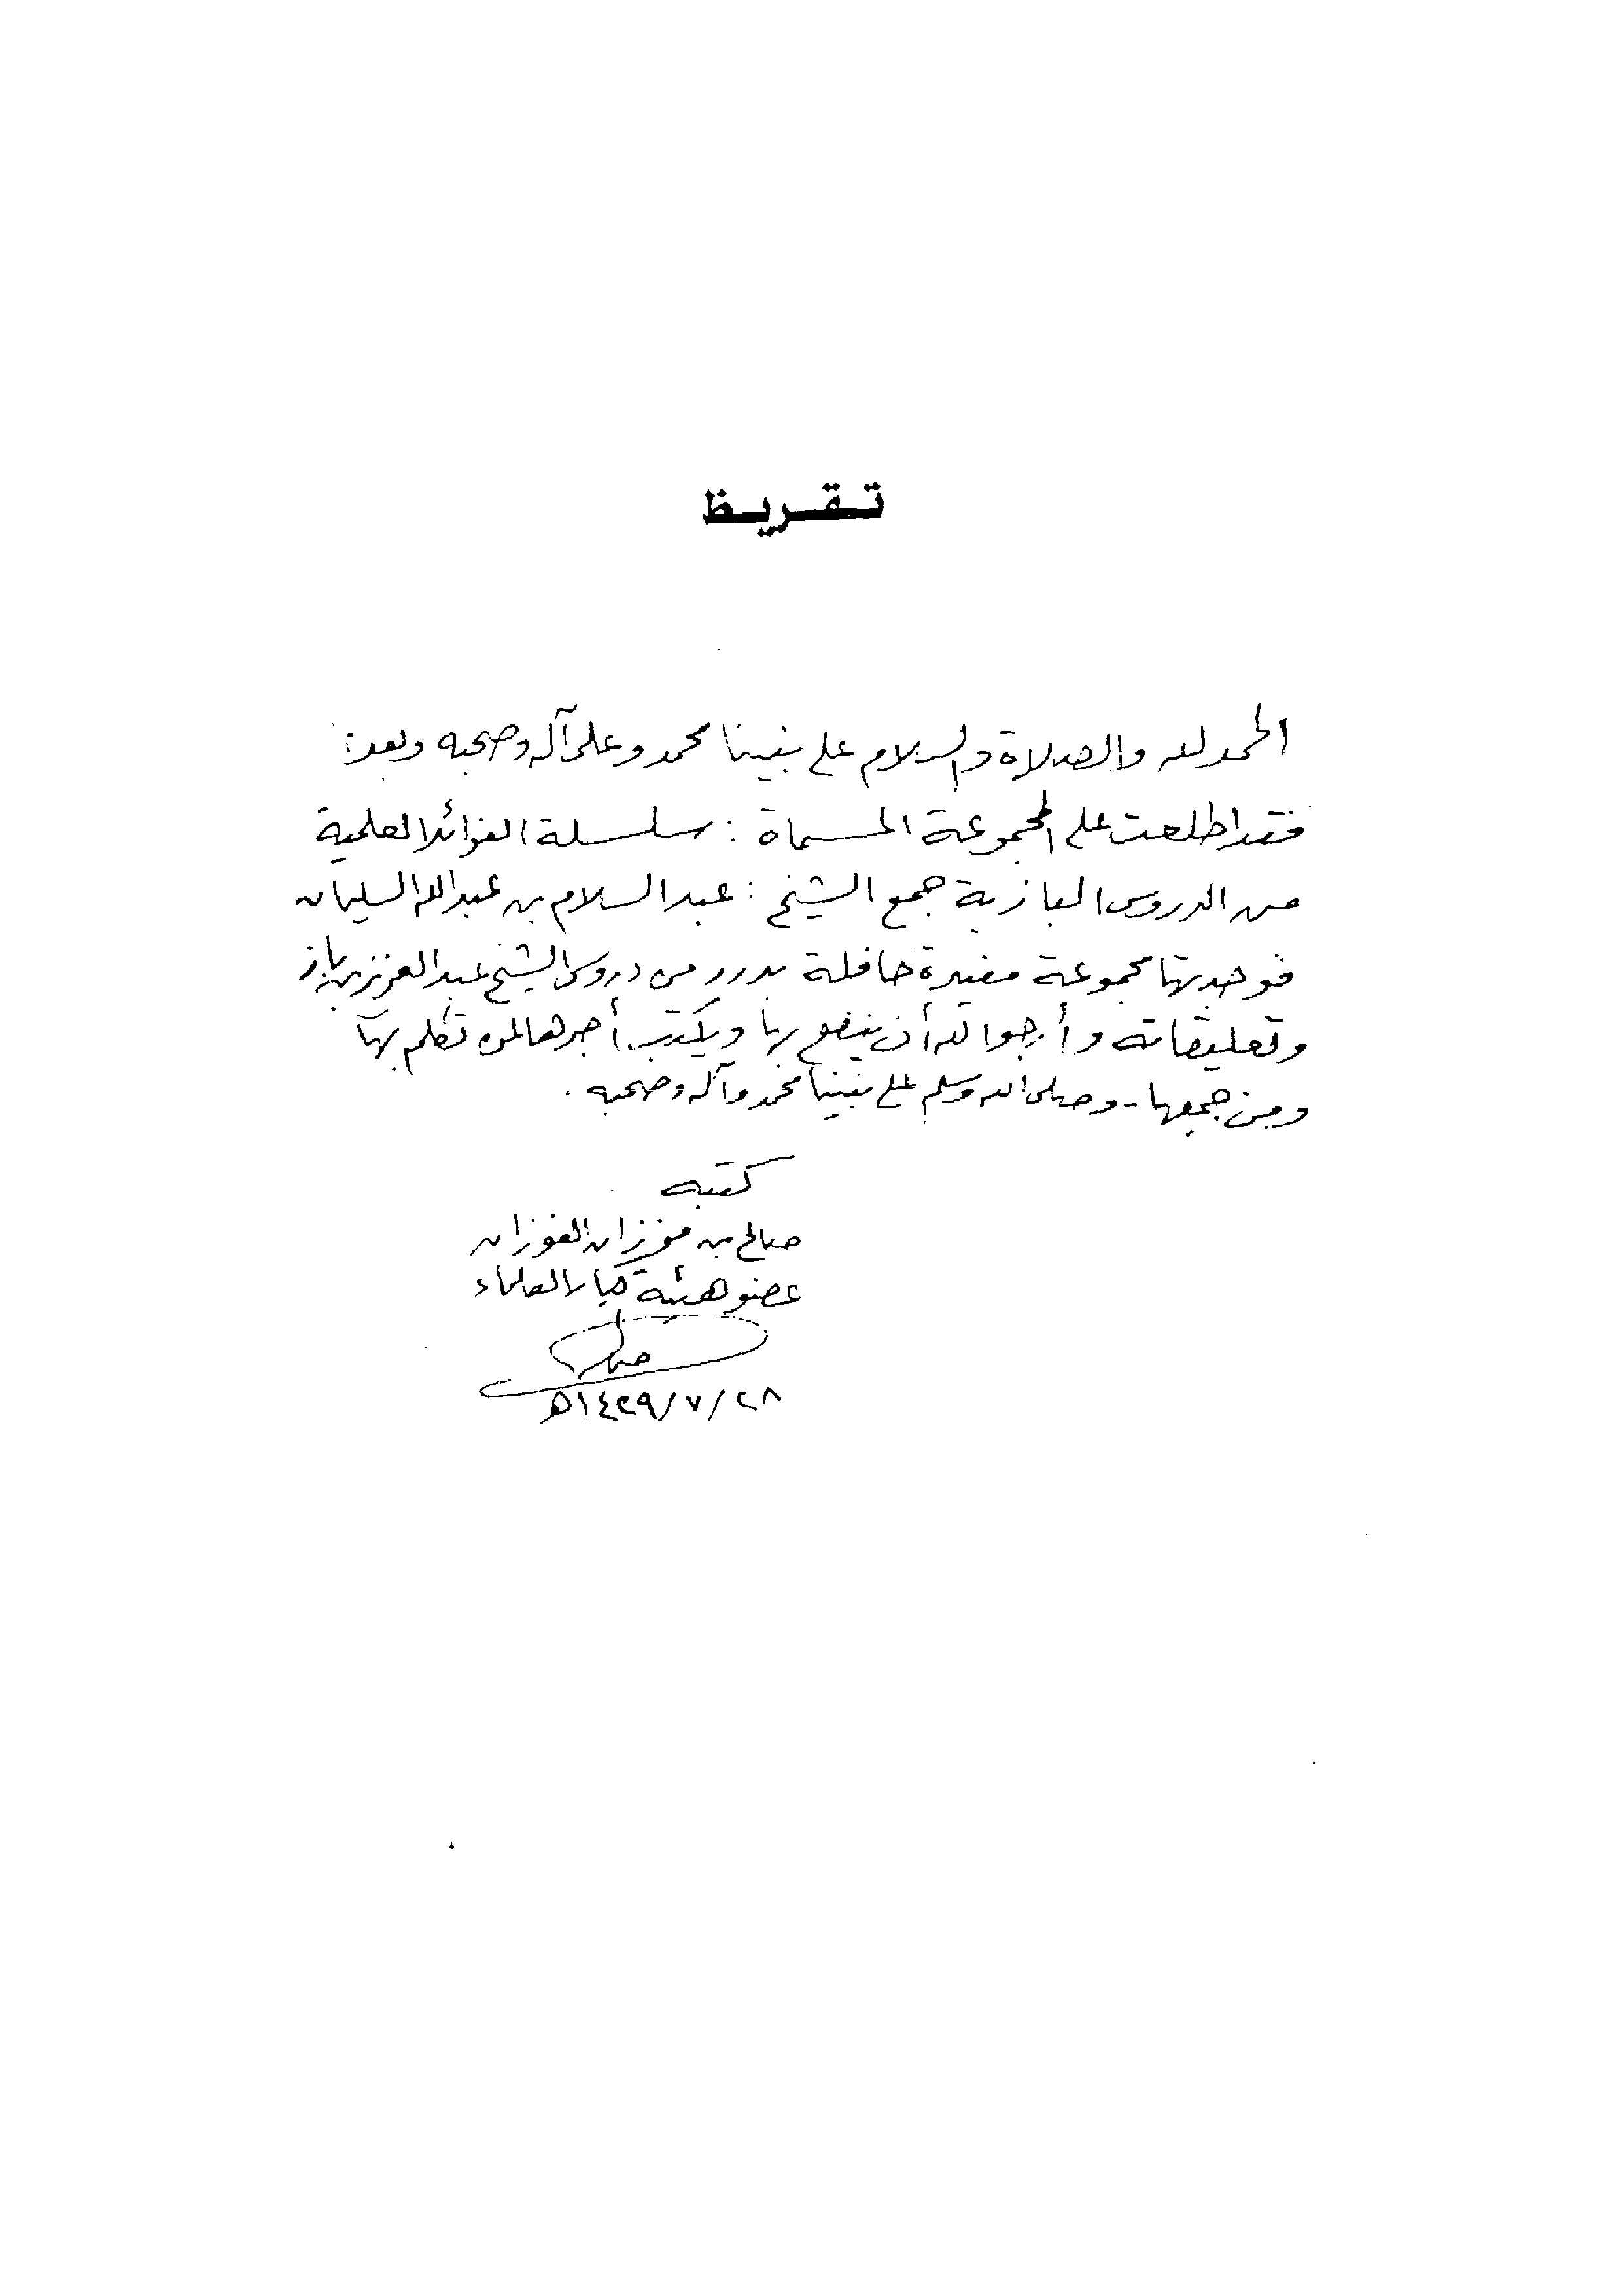 تقريظ
الحمد لله والصلاة والسلام على نبينا محمد وعلى آله وصحبه وبعد:
فقد اطلعت على المجموعة المسماة: سلسلة الفوائد العلمية
من الدروس البازية جمع الشيخ: عبد السلام بن عبدالله السليمان
فوجدتها مجموعة مفيدة حافلة بدرر من دروس الشيخ عبد العزيز بن باز
وتعليقاته وأرجو الله أن ينفع بها ويكتب أجرها لمن تكلم بها
ومن جمعها - وصلى الله وسلم على نبينا محمد وآله وصحبه.
كتبه
صالح بن فوزان الفوزان
عضو هيئة كبار العلماء
صالح
٢٨/٧/١٤٢٩هـ